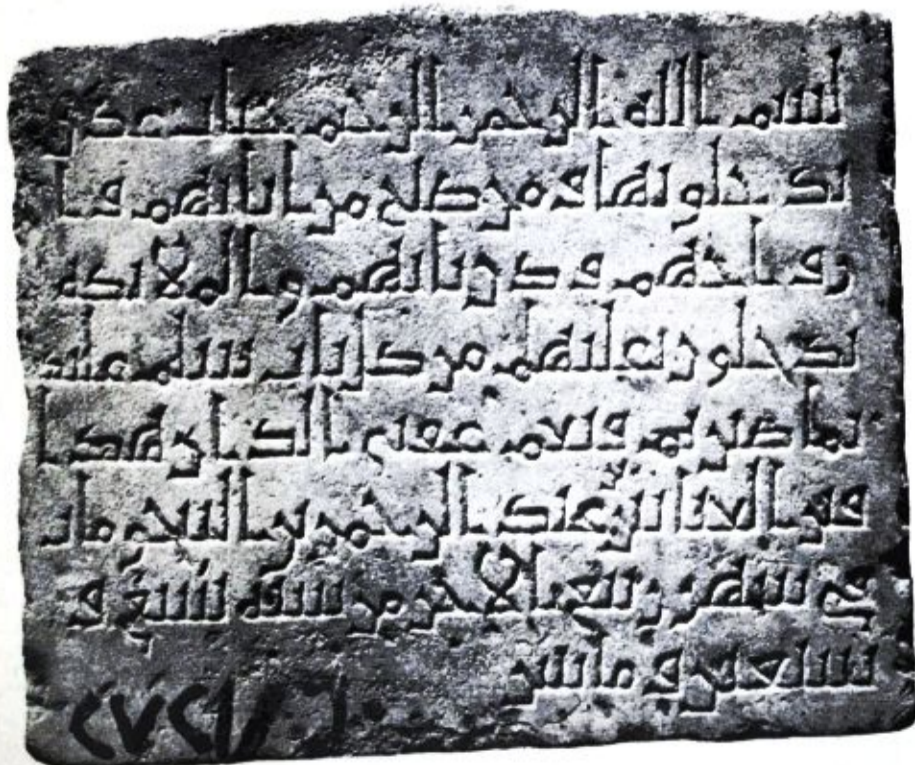 بسم الله الرحمن الرحيم جنات عدن
يدخلونها ومن صلح من ابائهم وا
زواجهم وذرياتهم والملائكة
يدخلون عليهم من كل باب سلم عليكم
بما صبرتم فنعم عقبى الدار هذا
قبر عبد الرحمن بن مات
في شهر ربيع الاخر من سنة تسع و
تسعين ومائتين
٢٧٢١